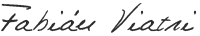 Fabián Viatri